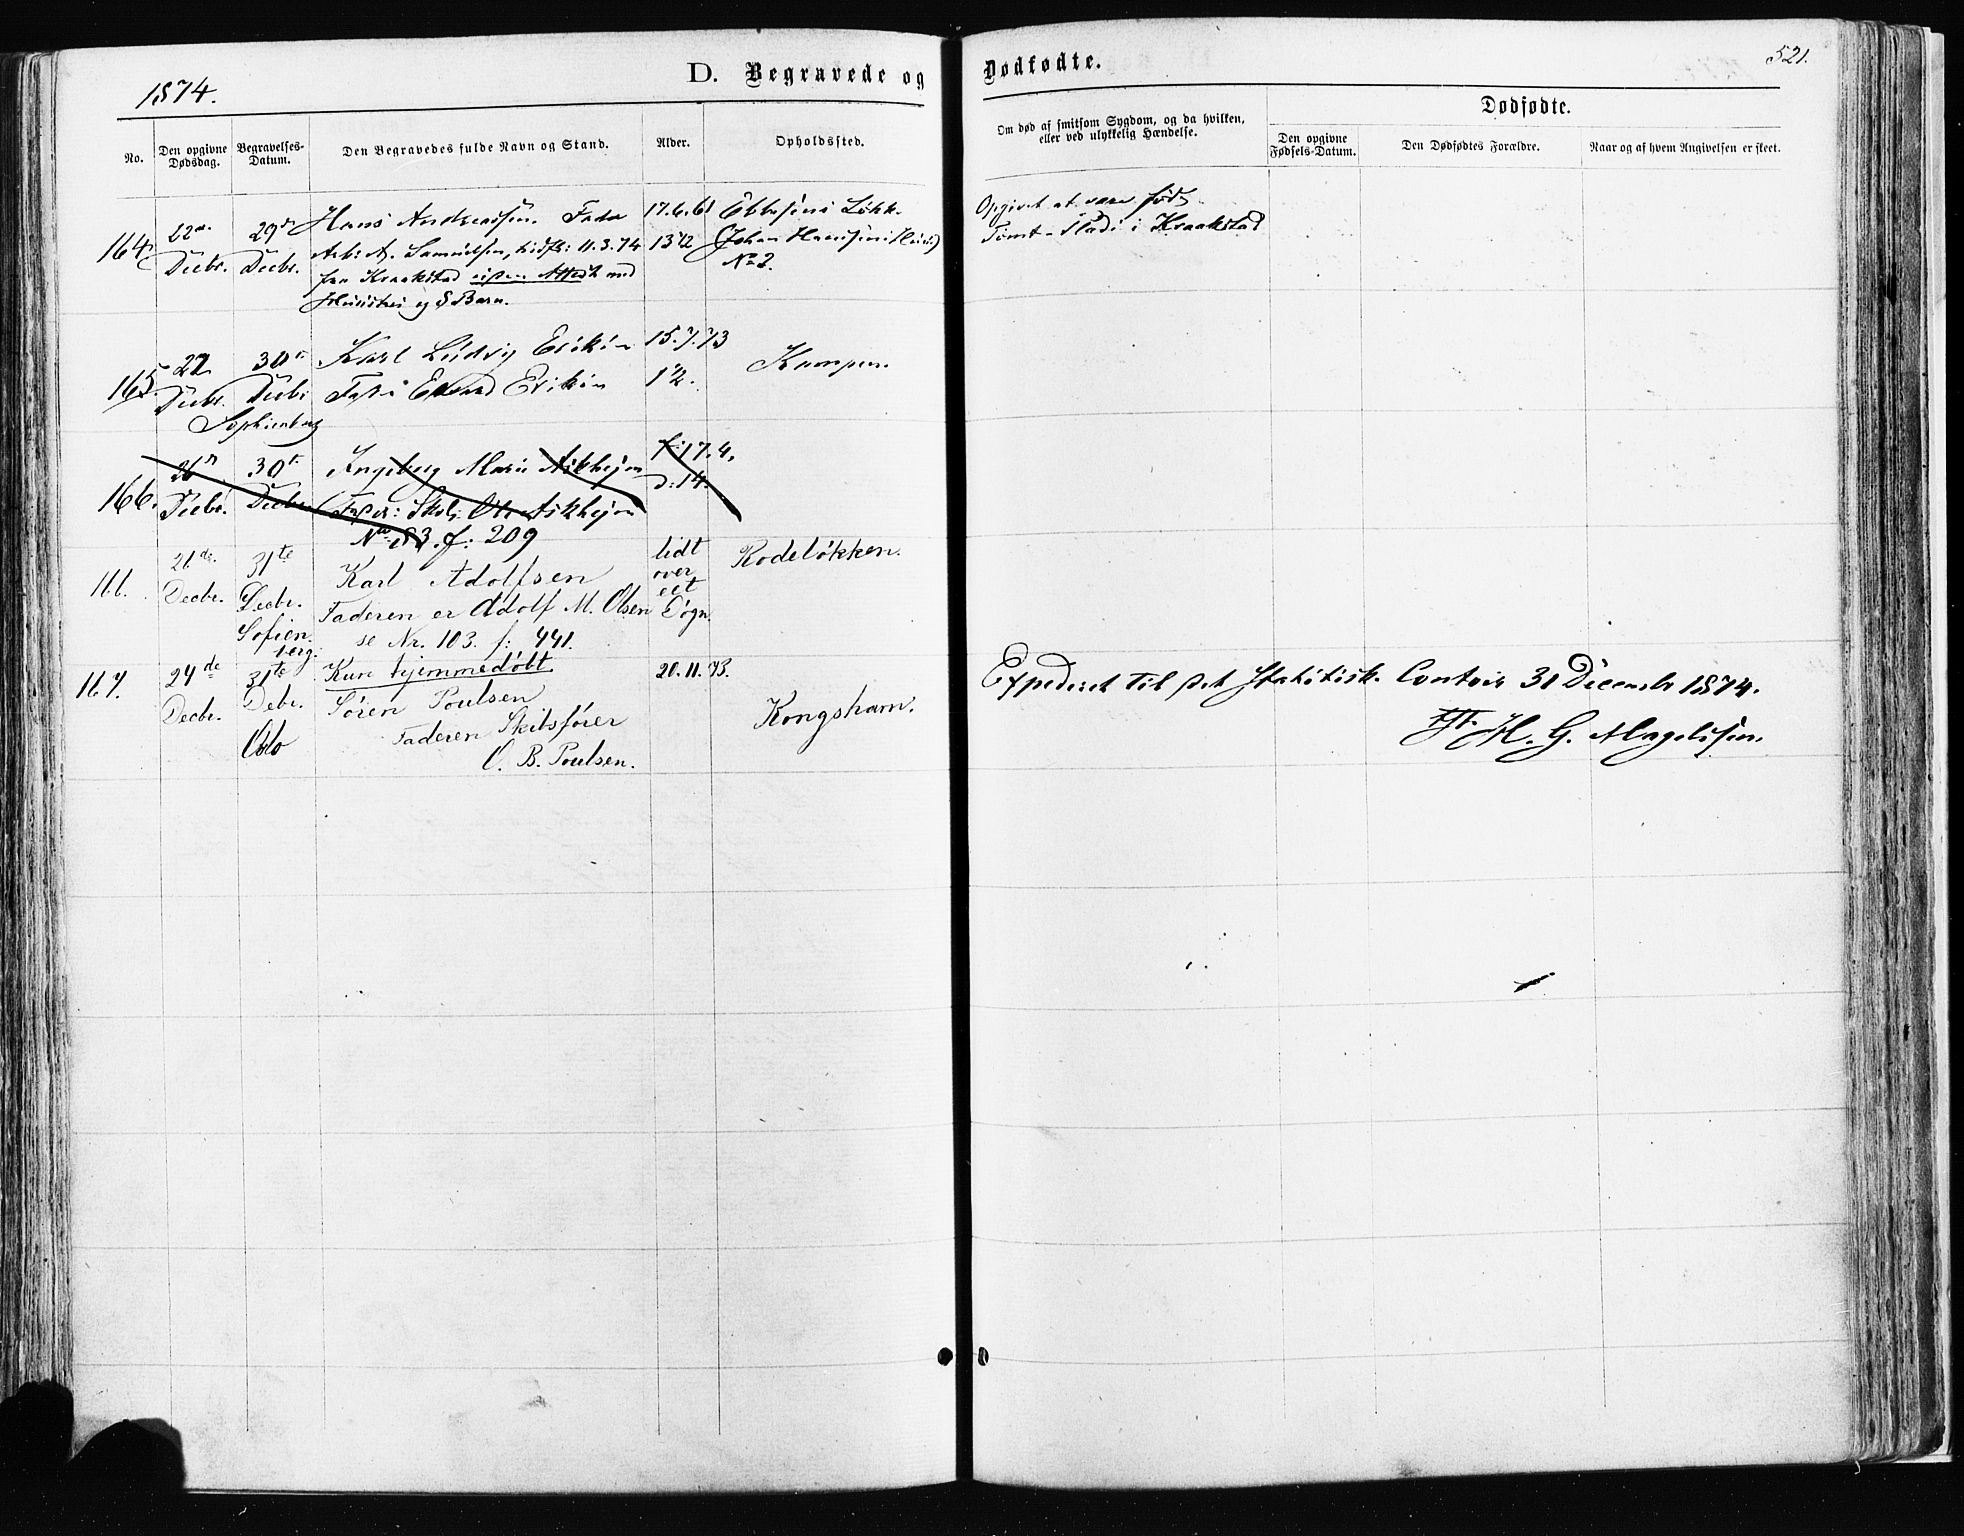 1874.
D. Begravede og
Dødfødte.
521.
No.
Den opgivne Dødsdag.
Begravelses-Datum.
Den Begravedes fulde Navn og Stand.
Alder.
Opholdssted.
Om død af smitsom Sygdom, og da hvilken, eller ved ulykkelig Hændelse.
Dødfødte.
Den opgivne Fødsels-Datum.
Den Dødfødtes Forældre.
Naar og af hvem Angivelsen er skeet.
164.
Decbr.
29de
Decbr.
Hans Andreassen. Fader
Arb. A. Samuelsen, 11.3.74
fra Kraakstad Attest med
Hustru og 8 Børn.
17.6.61
13 1/2
Løkk.
Johan
No 2.
Opgivet at være født
i Kraakstad
165.
27
Decbr.
30te
Decbr.
Sophienberg
Karl Ludvig
15.7.73
1 1/2.
Kampen.
166.
26de
Decbr.
30te
Decbr.
Ingeborg Marie Askhejm
Fader: Skol. Ole Askhejm
No 83. f: 209
f: 17.4.
d: 14.
166.
21de
Decbr.
31te
Decbr.
Sofien-
berg.
Karl Adolfsen
Faderen er Adolf M. Olsen
se Nr. 103. f: 441.
lidt
over
eet
Døgn.
Rodeløkken.
167.
24de
Decbr.
31te
Debr.
Oslo
Kun hjemmedøbt
Søren Poulsen
Faderen Skibsfører
O. B. Poulsen.
20.11.73.
Kongshavn.
Expederet til det Statistisk. Contoir 31 December 1874.
H. G. Magelssen.